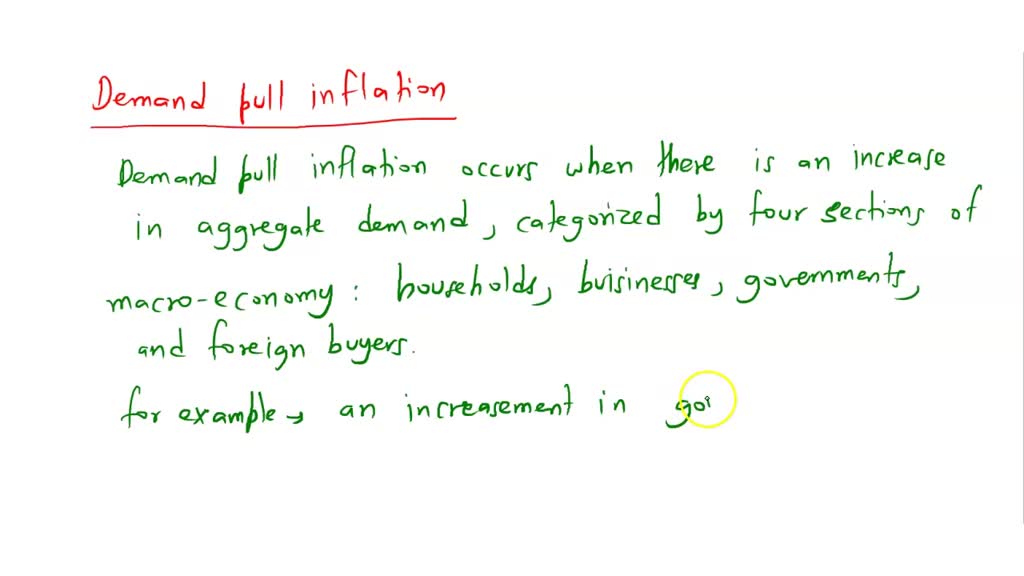 Demand pull inflation
Demand pull inflation occurs when there is an increase
in aggregate demand, categorized by four sections of
macro-economy: households, buisinesses, governments,
and foreign buyers.
for example → an increasement in